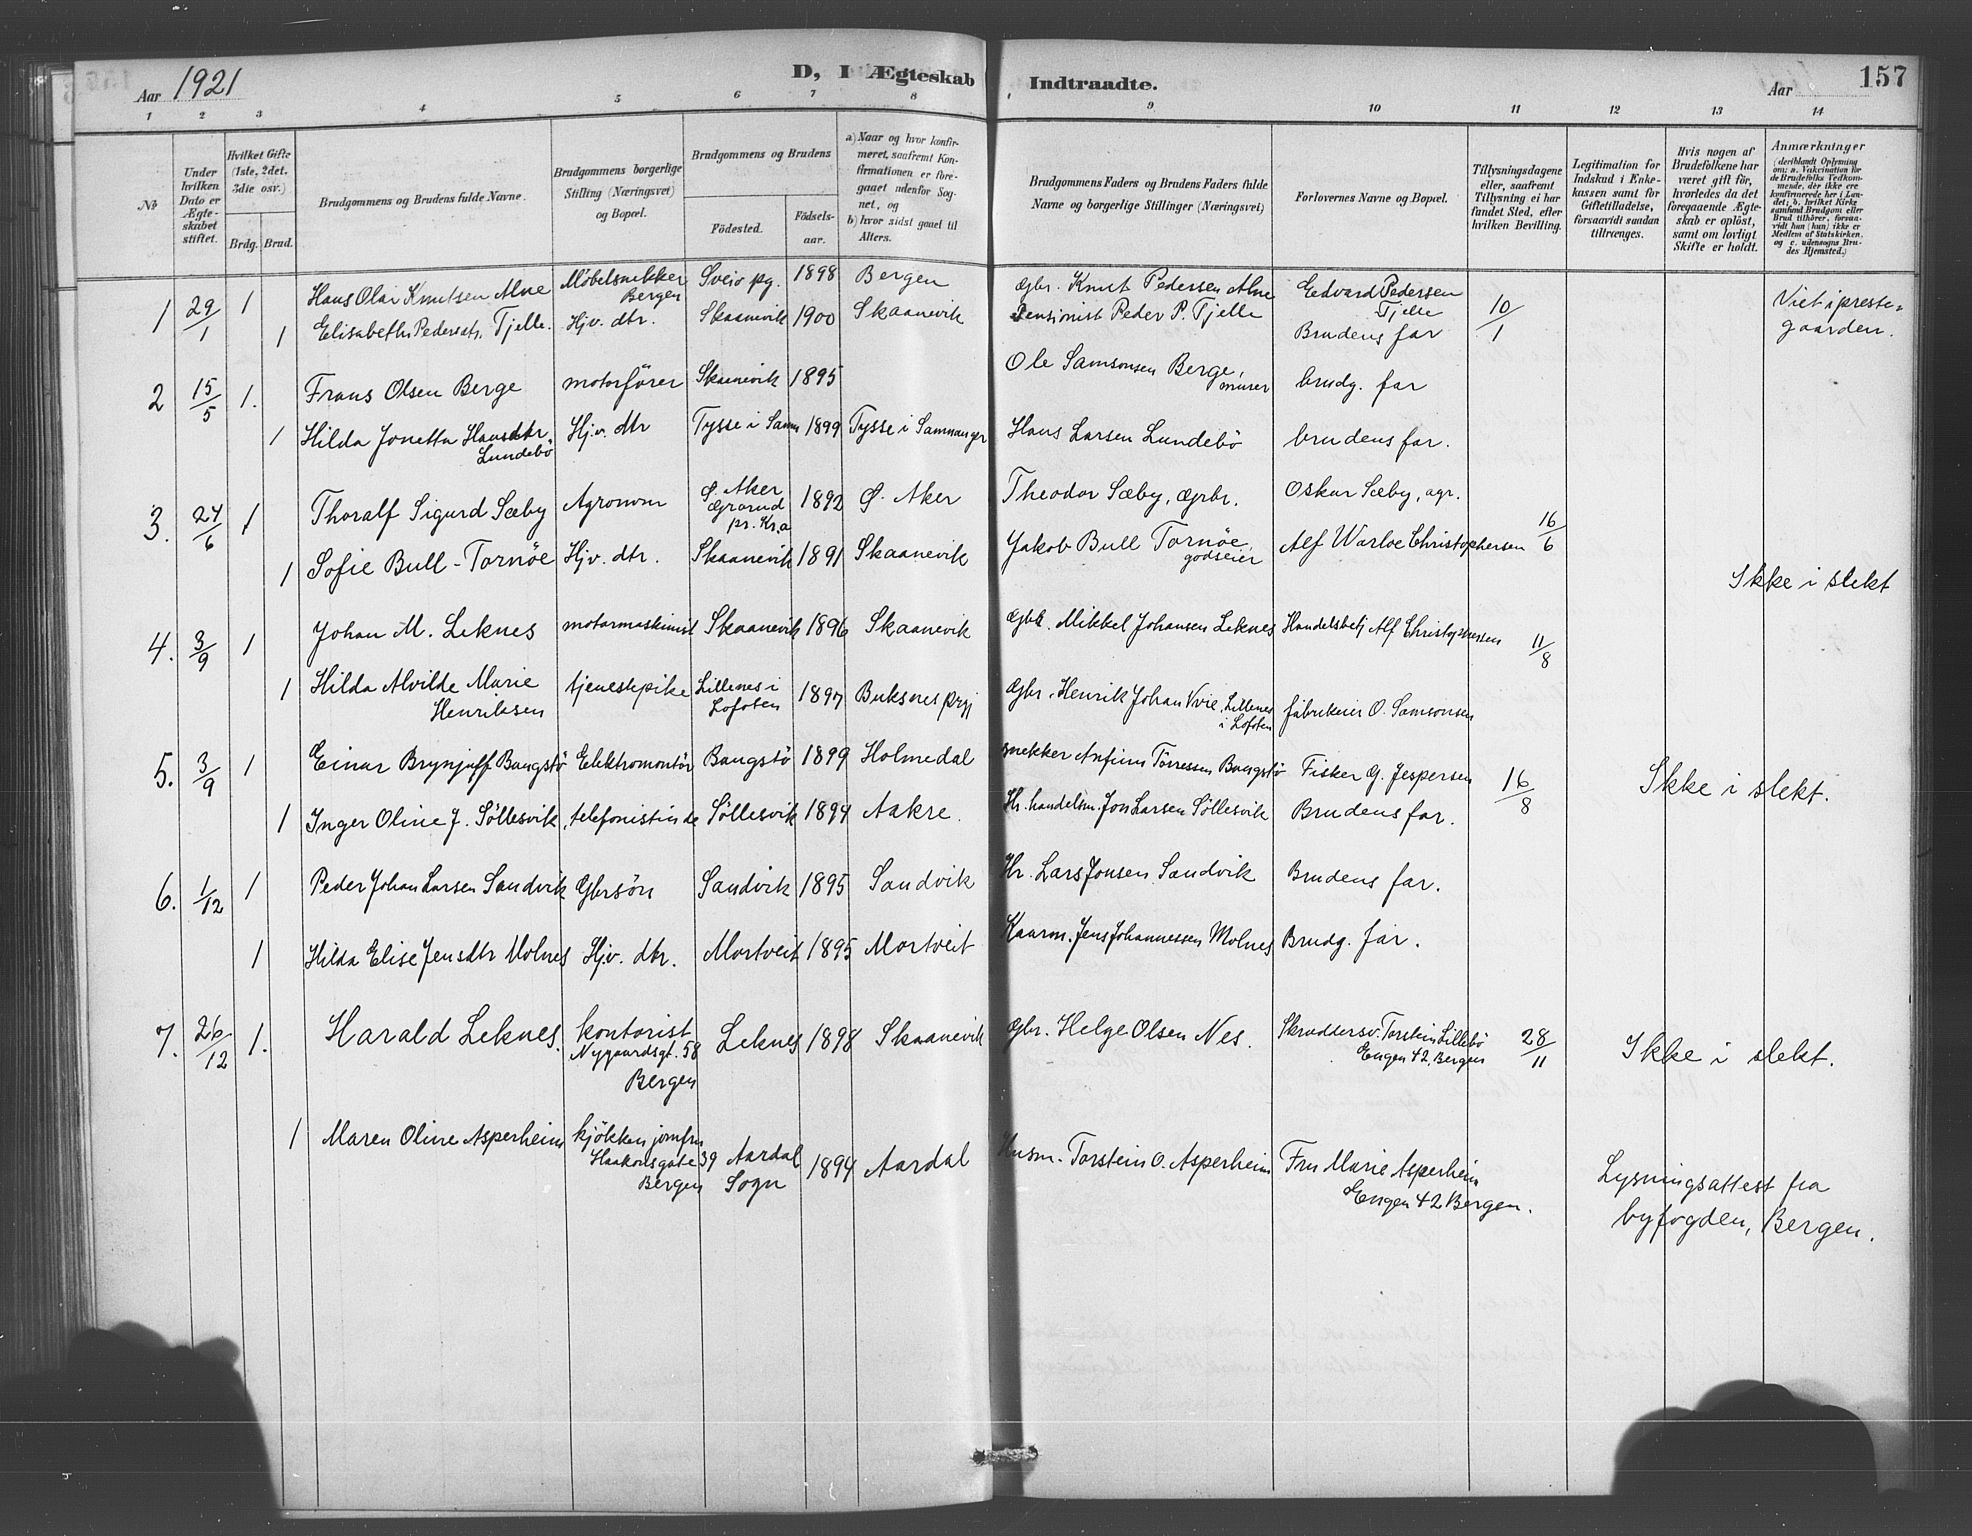 Aar 1921
D, I Ægteskab Indtraadte.
Aar 157
1 2 3 4 5 6 7 8 9 10 11 12 13 14
No
Under hvilken Dato er Ægteskabet stiftet.
Hvilket Gifte (1ste, 2det, 3die osv.)
Brdg. Brud.
Brudgommens og Brudens fulde Navne.
Brudgommens borgerlige Stilling (Næringsvei) og Bopæl.
Brudgommens og Brudens
Födested. Födselsaar.
a) Naar og hvor konfirmeret, saafremt Konfirmationen er foregaaet udenfor Sognet, og
b) hvor sidst gaaet til Alters.
Brudgommens Faders og Brudens Faders fulde Navne og borgerlige Stillinger (Næringsvei)
Forlovernes Navne og Bopæl.
Tillysningsdagene eller, saafremt Tillysning ei har fundet Sted, efter hvilken Bevilling.
Legitimation for Indskud i Enkekassen samt for Giftetilladelse, forsaavidt saadan tiltrænges.
Hvis nogen af Brudefolkene har været gift för, hvorledes da det foregaaende Ægteskab er oplöst, samt om lovligt Skifte er holdt.
Anmærkninger
(deriblandt Oplysning om: a. Vakcination för de Brudefolks Vedkommende, der ikke ere konfirmerede her i Landet; b. hvilket Kirkesamfund Brudgom eller Brud tilhörer, forsaavidt han (hun) ikke er Medlem af Statskirken, og c. udensogns Brudes Hjemsted.)
1 29/1 1 Hans Olai Knutsen Alne Möbelsnekker Bergen Sveio pg. 1898 Bergen Gbr. Knut Pedersen Alne Edvard Pedersen Tjelle 10/1 Viet i prestegaarden.
1 Elisabeth Pedersdtr. Tjelle. Hjv. dtr. Skaanevik 1900 Skaanevik Pensionist Peder P. Tjelle Brudens far
2 15/5 1. Frans Olsen Berge motorförer Skaanevik 1895 Ole Samsonsen Berge, murer brudg. far
1 Hilda Jonetta Hansdtr. Lundebö Hjv. dtr Tysse i Samn 1899 Tysse i Samnanger Hans Larsen Lundebö brudens far.
3. 24/6 1 Thoralf Sigurd Sæby Agronom Ø. Aker Grorud pr. Kr.a 1892 Ø. Aker Theodor Sæby, gbr. Oskar Sæby, agr. 16/6
1 Sofie Bull-Tornöe Hjv. dtr. Skaanevik 1891 Skaanevik Jakob Bull Tornöe, godseier Alf Warloe Christophersen Ikke i slekt
4. 3/9 1 Johan M. Leknes motormaskinist Skaanevik 1896 Skaanevik Gbr. Mikkel Johansen Leknes Handelsbetj Alf Christophersen 11/8
1 Hilda Alvilde Marie Henriksen tjenestepike Lillenes i Lofoten 1897 Buksnes prgj Gbr. Henrik Johan Vvie, Lillenes i Lofoten fabrikeier O. Samsonsen
5. 3/9 1 Einar Brynjulf Baugstö Elektromontör Baugstö 1899 Holmedal snekker Anfinn Törressen Baugstö Fisker G. Jespersen 16/8 Ikke i slekt.
1 Inger Oline J. Söllesvik, telefonistinde Söllesvik 1894 Aakre. Hr. handelsm. Jon Larsen Söllesvik Brudens far.
6. 1/12 1 Peder Johan Larsen Sandvik Gbrsön Sandvik 1895 Sandvik Hr. Lars Jonsen Sandvik Brudens far.
1 Hilda Elise Jensdtr Molnes Hjv. dtr. Mortveit 1895 Mortveit Kaarm. Jens Johannessen Molnes Brudg. far.
7. 26/12 1. Harald Leknes. kontorist Nygaardsgt. 58 Bergen Leknes 1898 Skaanevik Gbr. Helge Olsen Nes. Skræddersv. Torstein Lillebö Engen 42, Bergen 28/11 Ikke i slekt.
1 Maren Oline Asperheim kjökken jomfru Haakonsgate 39 Bergen Aardal Sogn 1894 Aardal Husm. Torstein O. Asperheim Fru Marie Asperheim Engen 42 Bergen. Lysningsattest fra byfogden, Bergen.